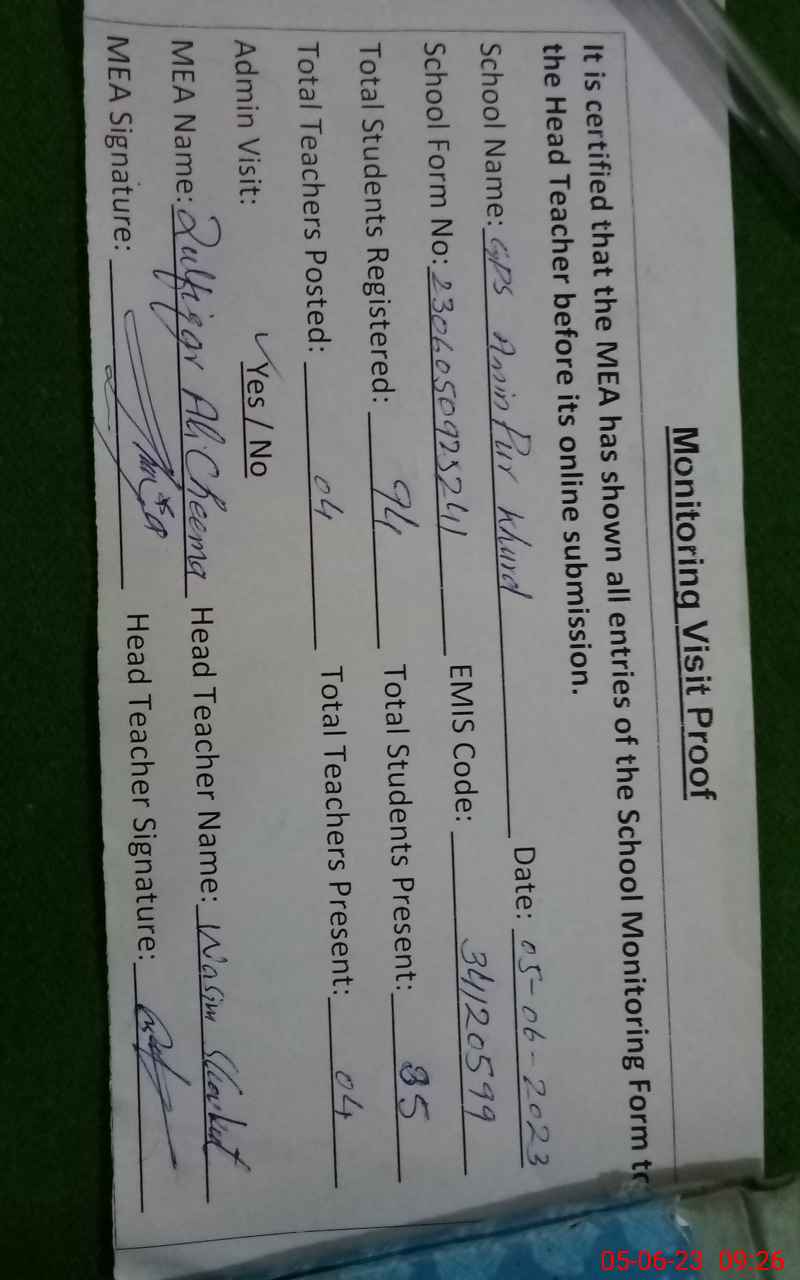 Monitoring Visit Proof
It is certified that the MEA has shown all entries of the School Monitoring Form to
the Head Teacher before its online submission.
School Name: GPS Amin Pur Khurd Date: 05-06-2023
School Form No: 230605092524 EMIS Code: 34120599
Total Students Registered: 94 Total Students Present: 85
Total Teachers Posted: 04 Total Teachers Present: 04
Admin Visit: ✓Yes / No
MEA Name: Zulfiqar Ali Cheema Head Teacher Name: Wasim Shaukat
MEA Signature: Head Teacher Signature:
05-06-23 09:26